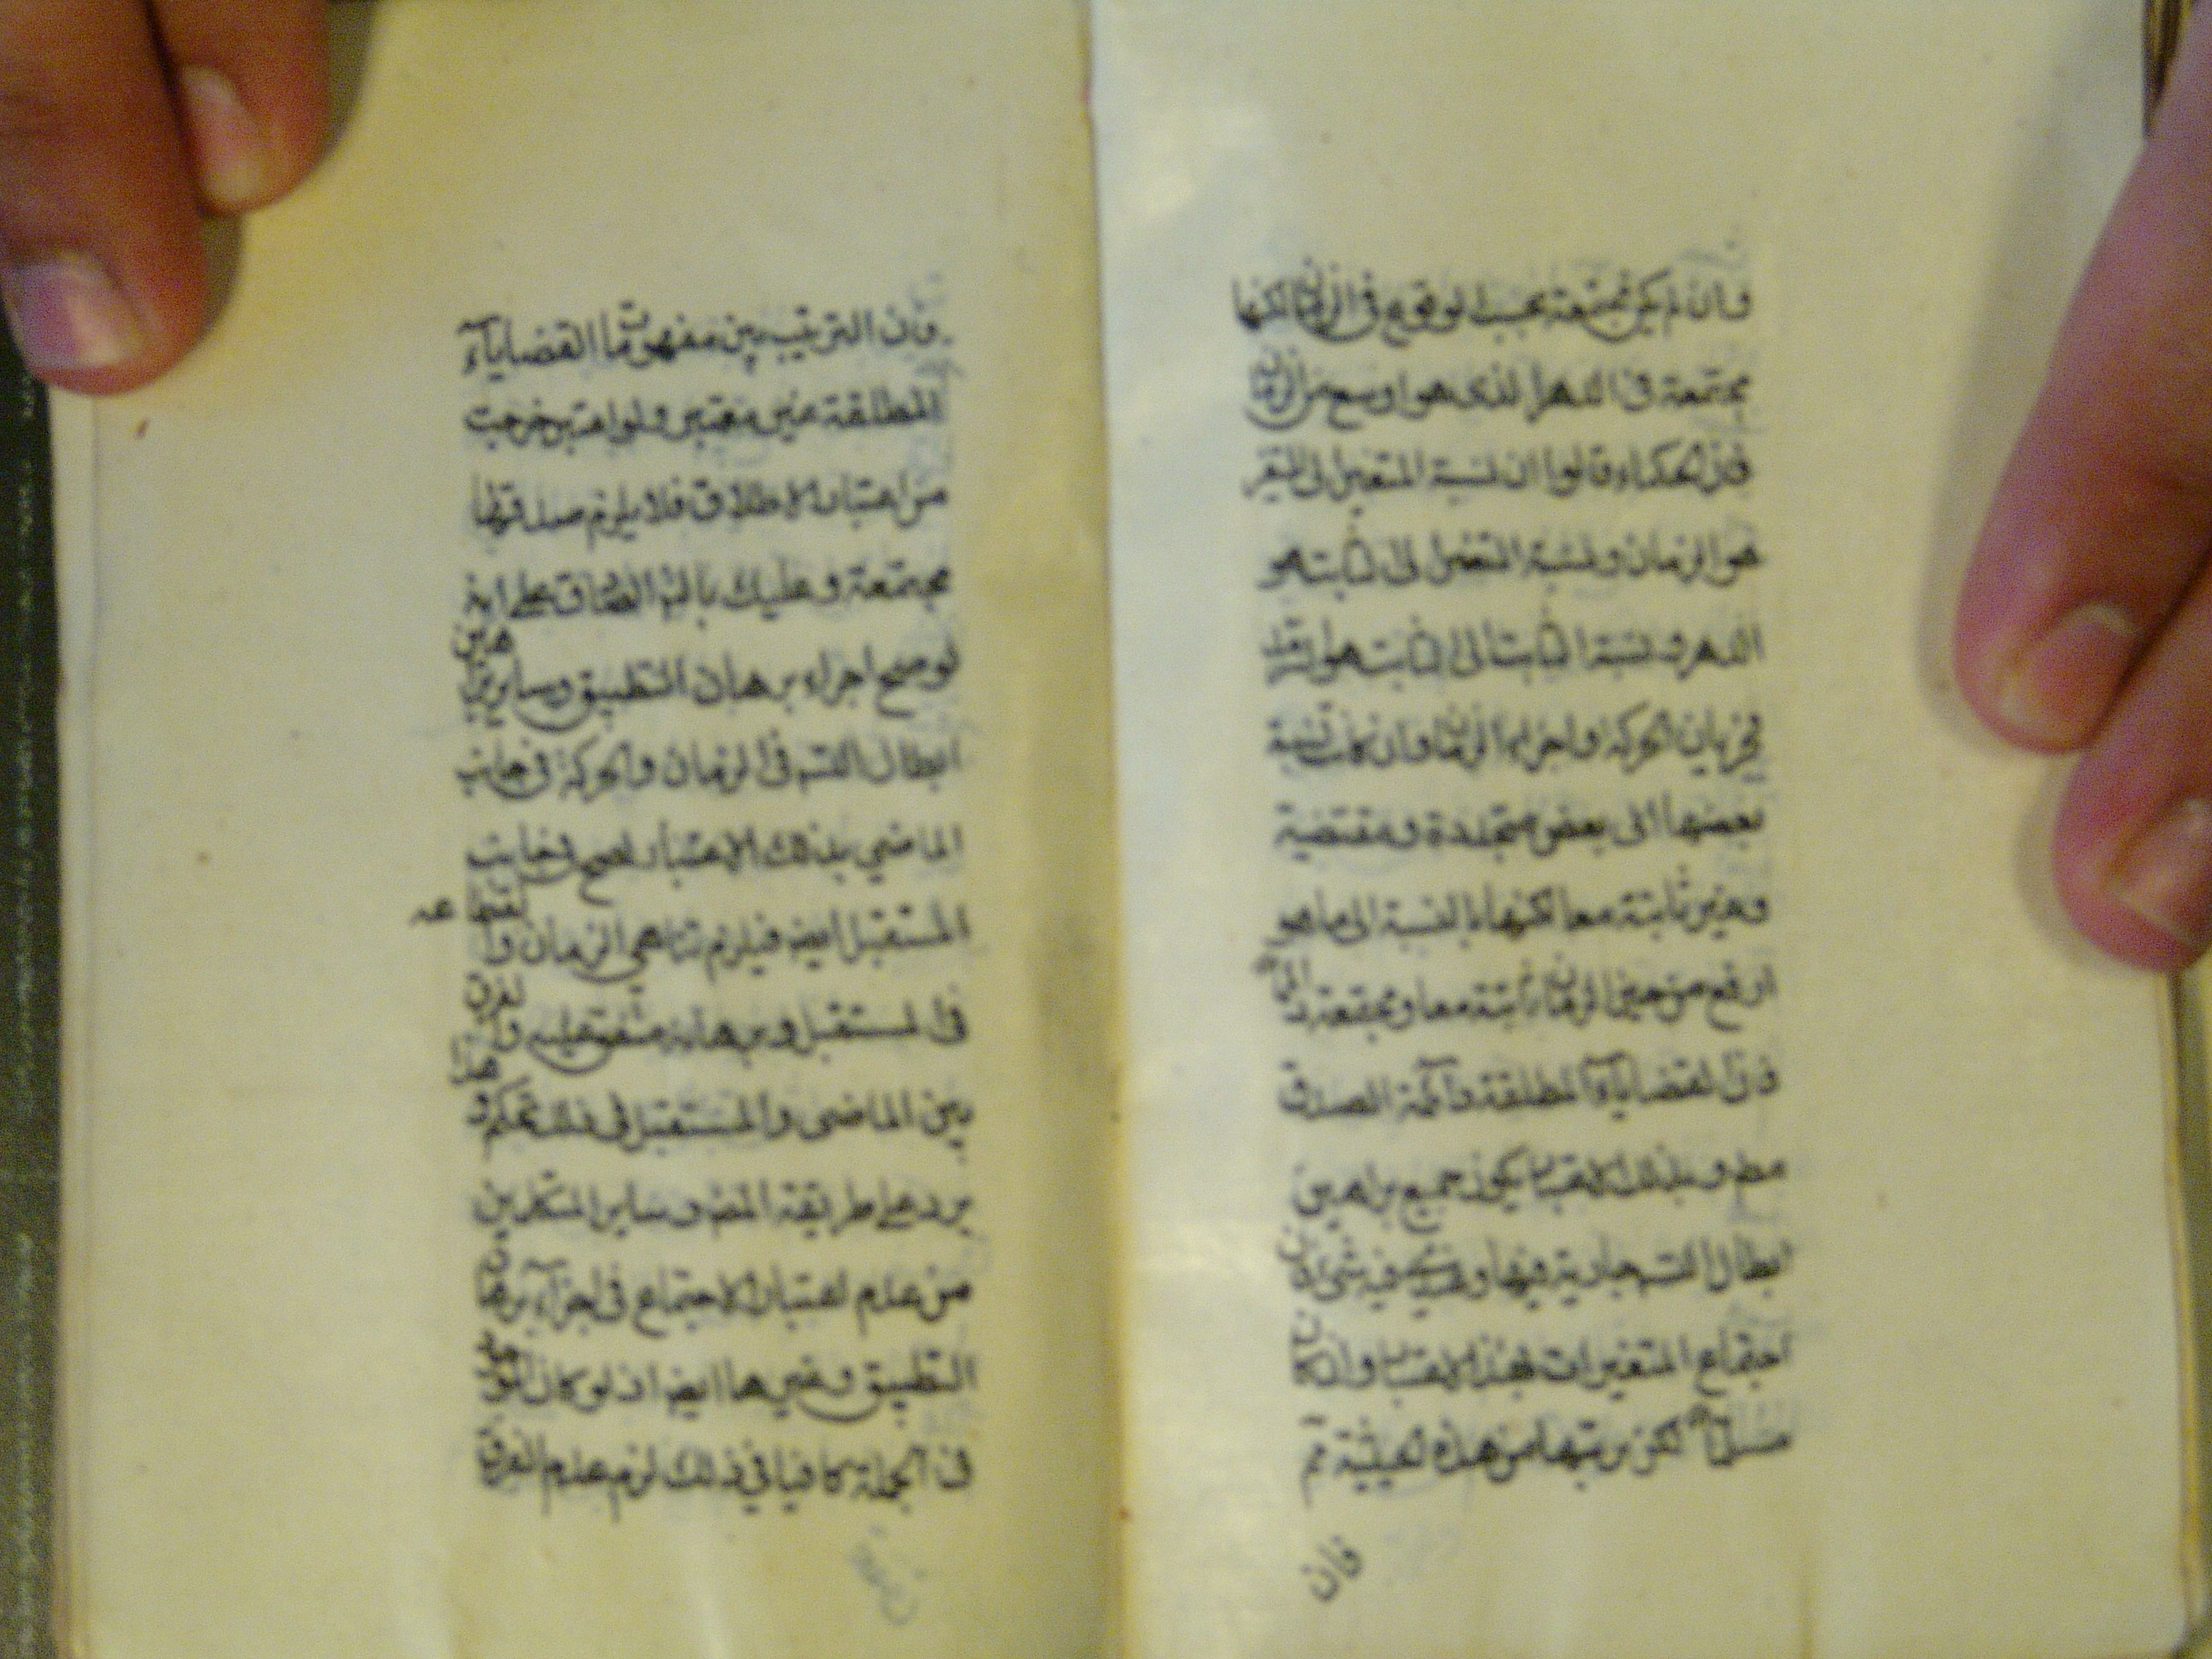 وان لم يكن مجتمعة بحسب الوقوع في الزمان لكنها
مجتمعة في الدهر الذى هو اوسع من الزمان
فان الحكماء قالوا ان نسبة المتغير الى المتغير
هو الزمان ونسبة المتغير الى الثابت هو
الدهر ونسبة الثابت الى الثابت هو السرمد
فجريان الحركة واجزاء الزمان وان كانت نسبة
بعضها الى بعض متجددة ومقتضية
وغير ثابتة معا لكنها بالنسبة الى ما هو
ارفع من حيز الزمان ثابتة معا ومجتمعة دائما
فان القضايا المطلقة دائمة الصدق
مط وبذلك الاعتبار يكون جميع براهين
ابطال التسـ جارية فيها وفيه شئ فان
اجتماع المتغيرات بهذا الاعتبار وان كان
مسلما لكن ترتبها من هذه الحيثية مم
فان
وان الترتيب بين مفهومات القضايا
المطلقة غير معتبر ولو اعتبر خرجت
من اعتبار الاطلاق فلا يلزم صدقها
مجتمعة وعليك بالتم الصادق على انه
لو صح اجراء برهان التطبيق وساير براهين
ابطال التسـ في الزمان والحركة في جانب
الماضي بذلك الاعتبار لصح في جانب
المستقبل ايضا فيلزم تناهي الزمان وانقطاعه
في المستقبل وبرهانه متفق عليه والفرق
بين الماضى والمستقبل في ذلك تحكم وهذا
يرد على طريقة المصـ وساير المتكلمين
من عدم اعتبار الاجتماع في اجزاء برهان
التطبيق وغيرها ايضا اذ لو كان الوجود
في الجملة كافيا في ذلك لزم عدم الفرق